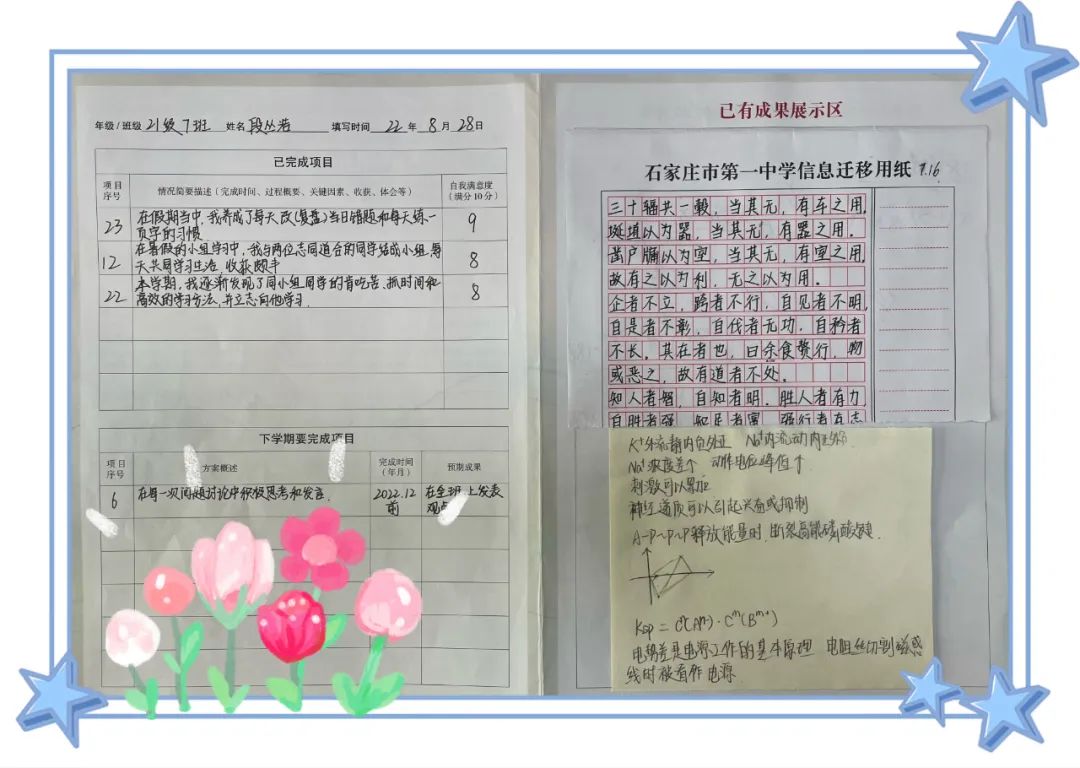 年级/班级 21级7班 姓名 段丛若 填写时间 22 年 8 月 28日
已完成项目
项目序号 情况简要描述（完成时间、过程概要、关键因素、收获、体会等） 自我满意度（满分10分）
23 在假期当中，我养成了每天改(复盘)当日错题和每天练一 9
页字的习惯
12 在暑假的小组学习中，我与两位志同道合的同学结成小组，每 8
天共同学习生活，收获颇丰
22 本学期，我逐渐发现了同小组同学的肯吃苦、抓时间和 8
高效的学习方法，并立志向他学习.
下学期要完成项目
项目序号 方案概述 完成时间（年月） 预期成果
6 在每一次问题讨论中积极思考和发言. 2022.12 在全班上发表
前 观点
已有成果展示区
石家庄市第一中学信息迁移用纸 9.16
三十辐共一毂，当其无，有车之用.
埏埴以为器，当其无，有器之用.
凿户牖以为室，当其无，有室之用.
故有之以为利，无之以为用.
企者不立，跨者不行，自见者不明，
自是者不彰，自伐者无功，自矜者
不长。其在道也，曰余食赘行，物
或恶之，故有道者不处.
知人者智，自知者明.胜人者有力，
自胜者强.知足者富.强行者有志
K⁺外流静内负外正 Na⁺内流动内正外负
Na⁺浓度差↑ 动作电位峰值↑
刺激可以累加
神经递质可以引起兴奋或抑制
A-P~P~P释放能量时，断裂高能磷酸键.
Ksp = Cⁿ(Aᵐ⁻)·Cᵐ(Bⁿ⁺)
电势差是电源工作的基本原理 电阻丝切割磁感
线时被看作电源